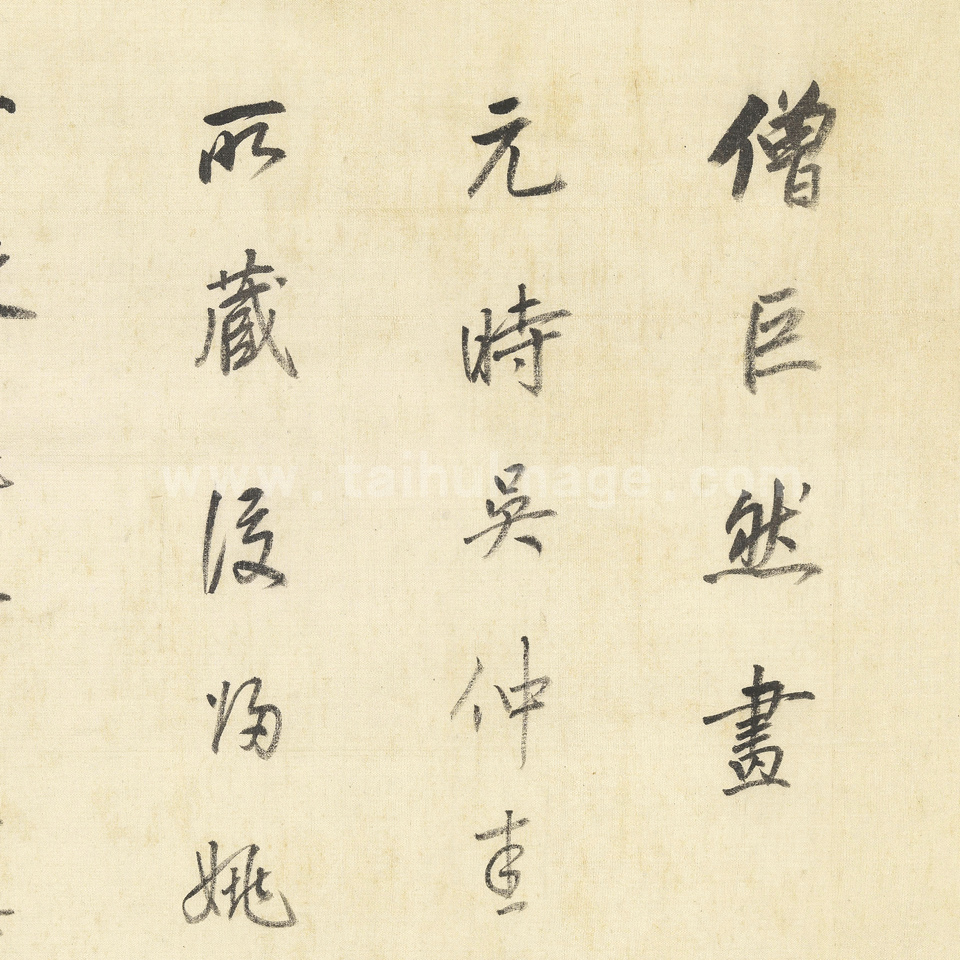 僧巨然畫
元時吳仲圭
所藏後歸姚
www.taihuimage.com